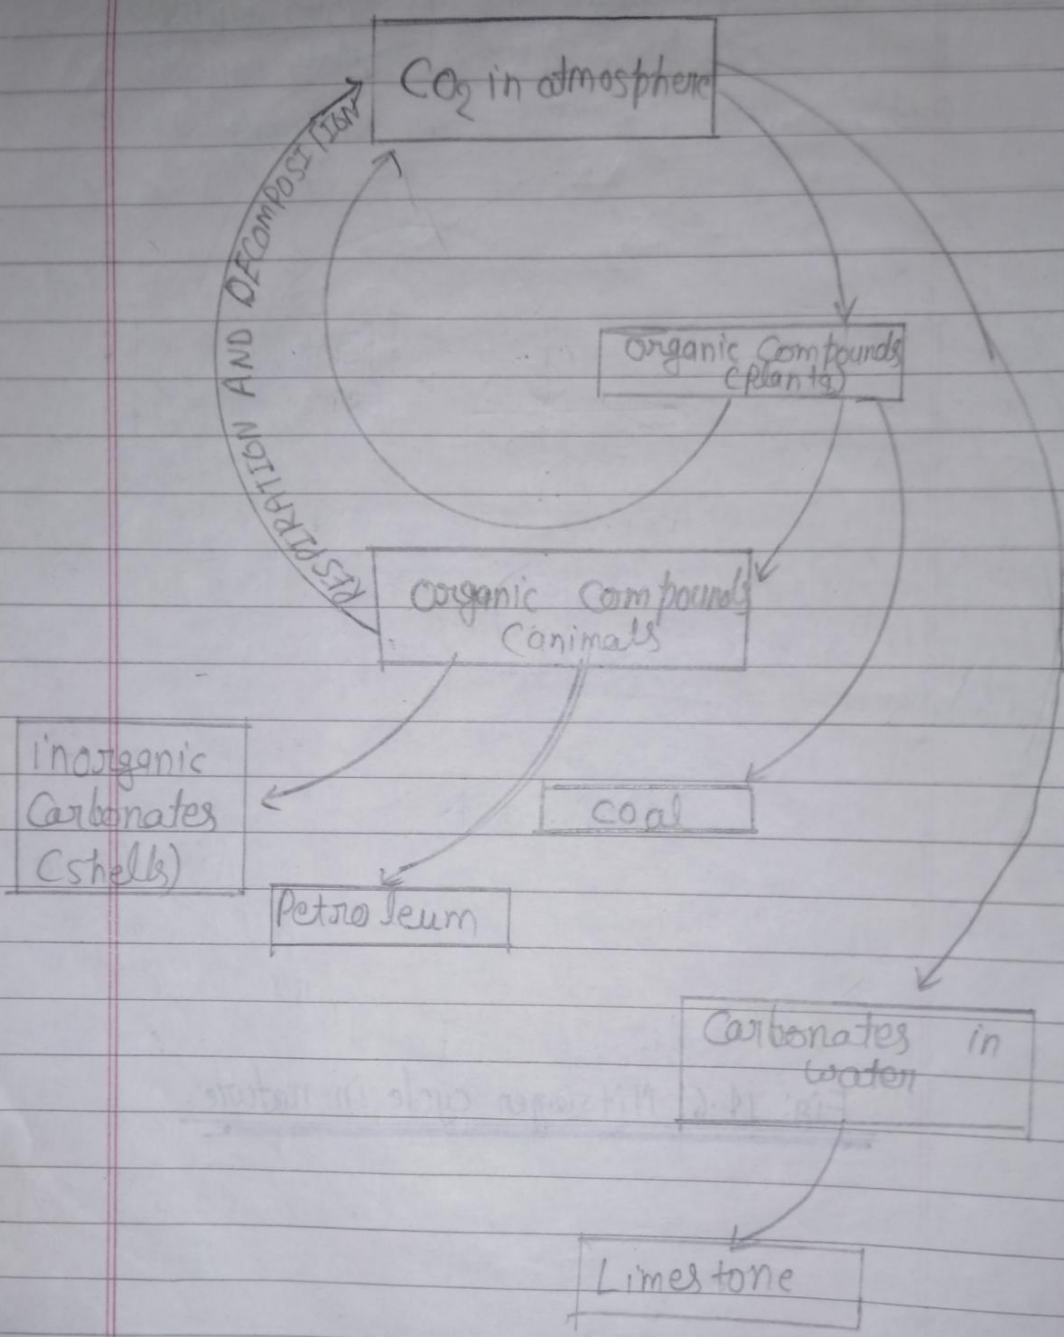 CO₂ in atmosphere
RESPIRATION AND DECOMPOSITION
organic compounds
(Plants)
organic compounds
(animals
inorganic
Carbonates
(shells)
coal
Petroleum
Carbonates in
water
Fig: 14.6: Nitrogen cycle in nature
Limestone